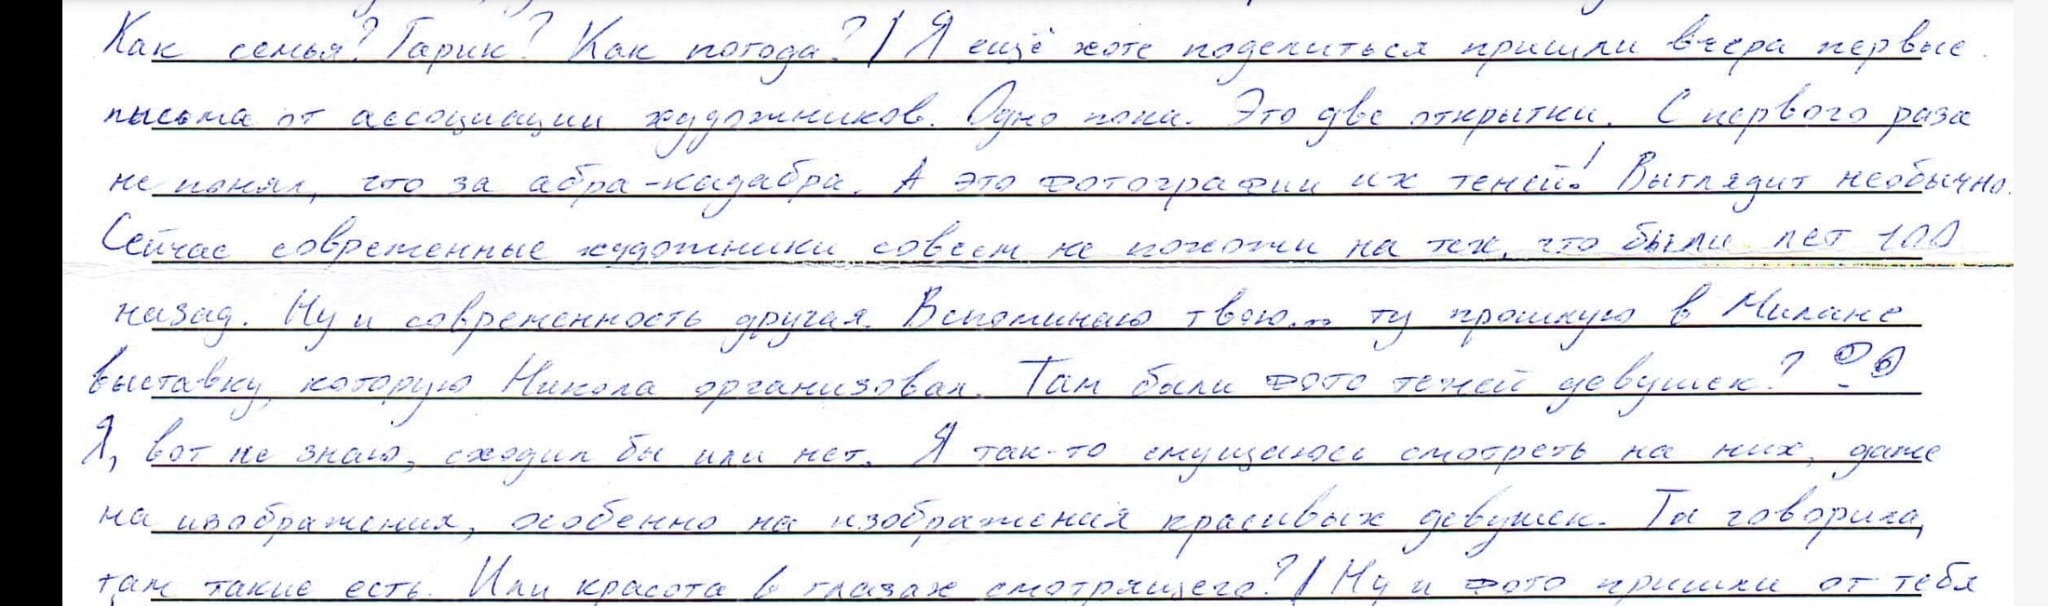 Как семья? Гарик? Как погода? / Я ещё хоте поделиться пришли вчера первые
письма от ассоциации художников. Одно пока. Это две открытки. С первого раза
не понял, что за абра-кадабра. А это фотографии их теней! Выглядит необычно.
Сейчас современные художники совсем не похожи на тех, что были лет 100
назад. Ну и современность другая. Вспоминаю твою... ту прошлую в Милане
выставку, которую Никола организовал. Там были фото теней девушек?
Я, вот не знаю, сходил бы или нет. Я так-то смущаюсь смотреть на них, даже
на изображения, особенно на изображения красивых девушек. Ты говорила,
там такие есть. Или красота в глазах смотрящего? / Ну и фото пришли от тебя